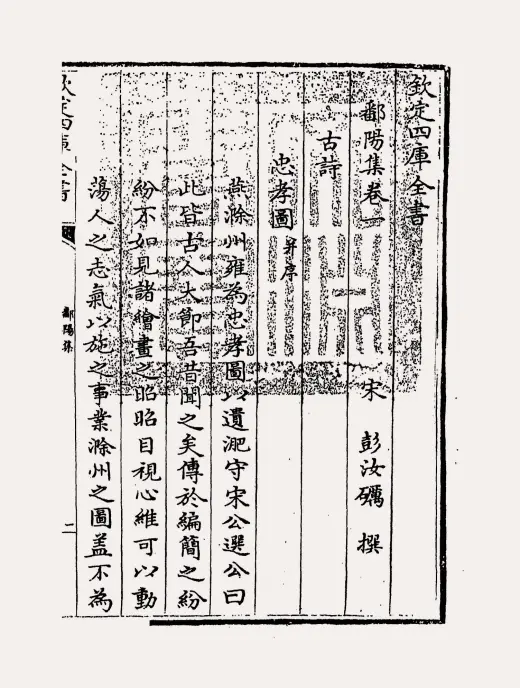 欽定四庫全書
鄱陽集卷一
宋 彭汝礪 撰
古詩
忠孝圖并序
燕滁州雍為忠孝圖以遺淝守宋公選公曰
此皆古人大節吾昔聞之矣傳於編簡之紛
紛不如見諸繪畫之昭昭目視心維可以動
蕩人之志氣以施之事業滁州之圖蓋不為
欽定四庫全書
鄱陽集
二